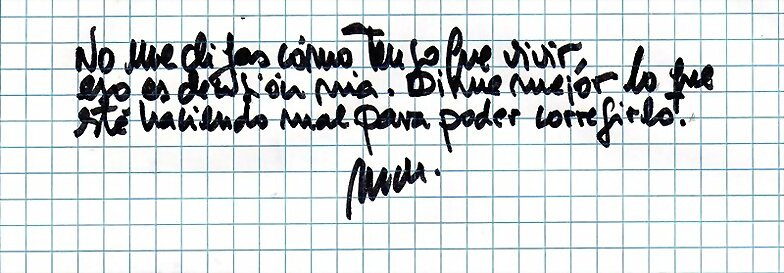 No me digas cómo tengo que vivir,
eso es decisión mia. Dime mejor lo que
esté haciendo mal para poder corregirlo.